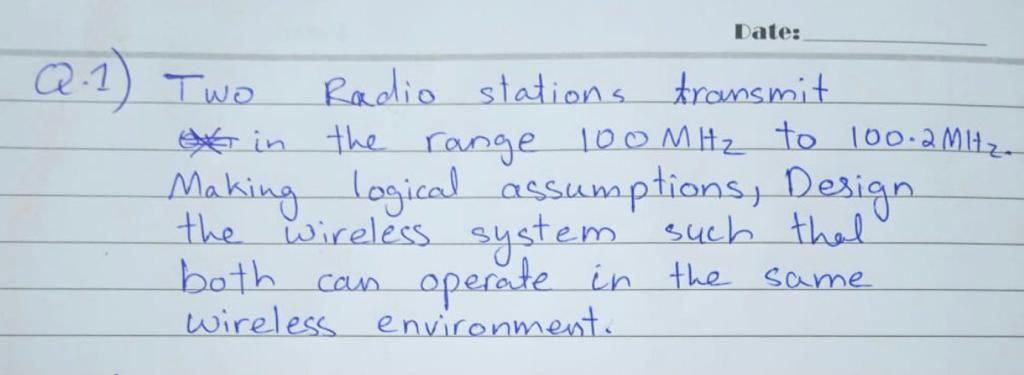 Date:
Q.1) Two Radio stations transmit
in the range 100 MHz to 100.2 MHz.
Making logical assumptions, Design
the wireless system such that
both can operate in the same
wireless environment.